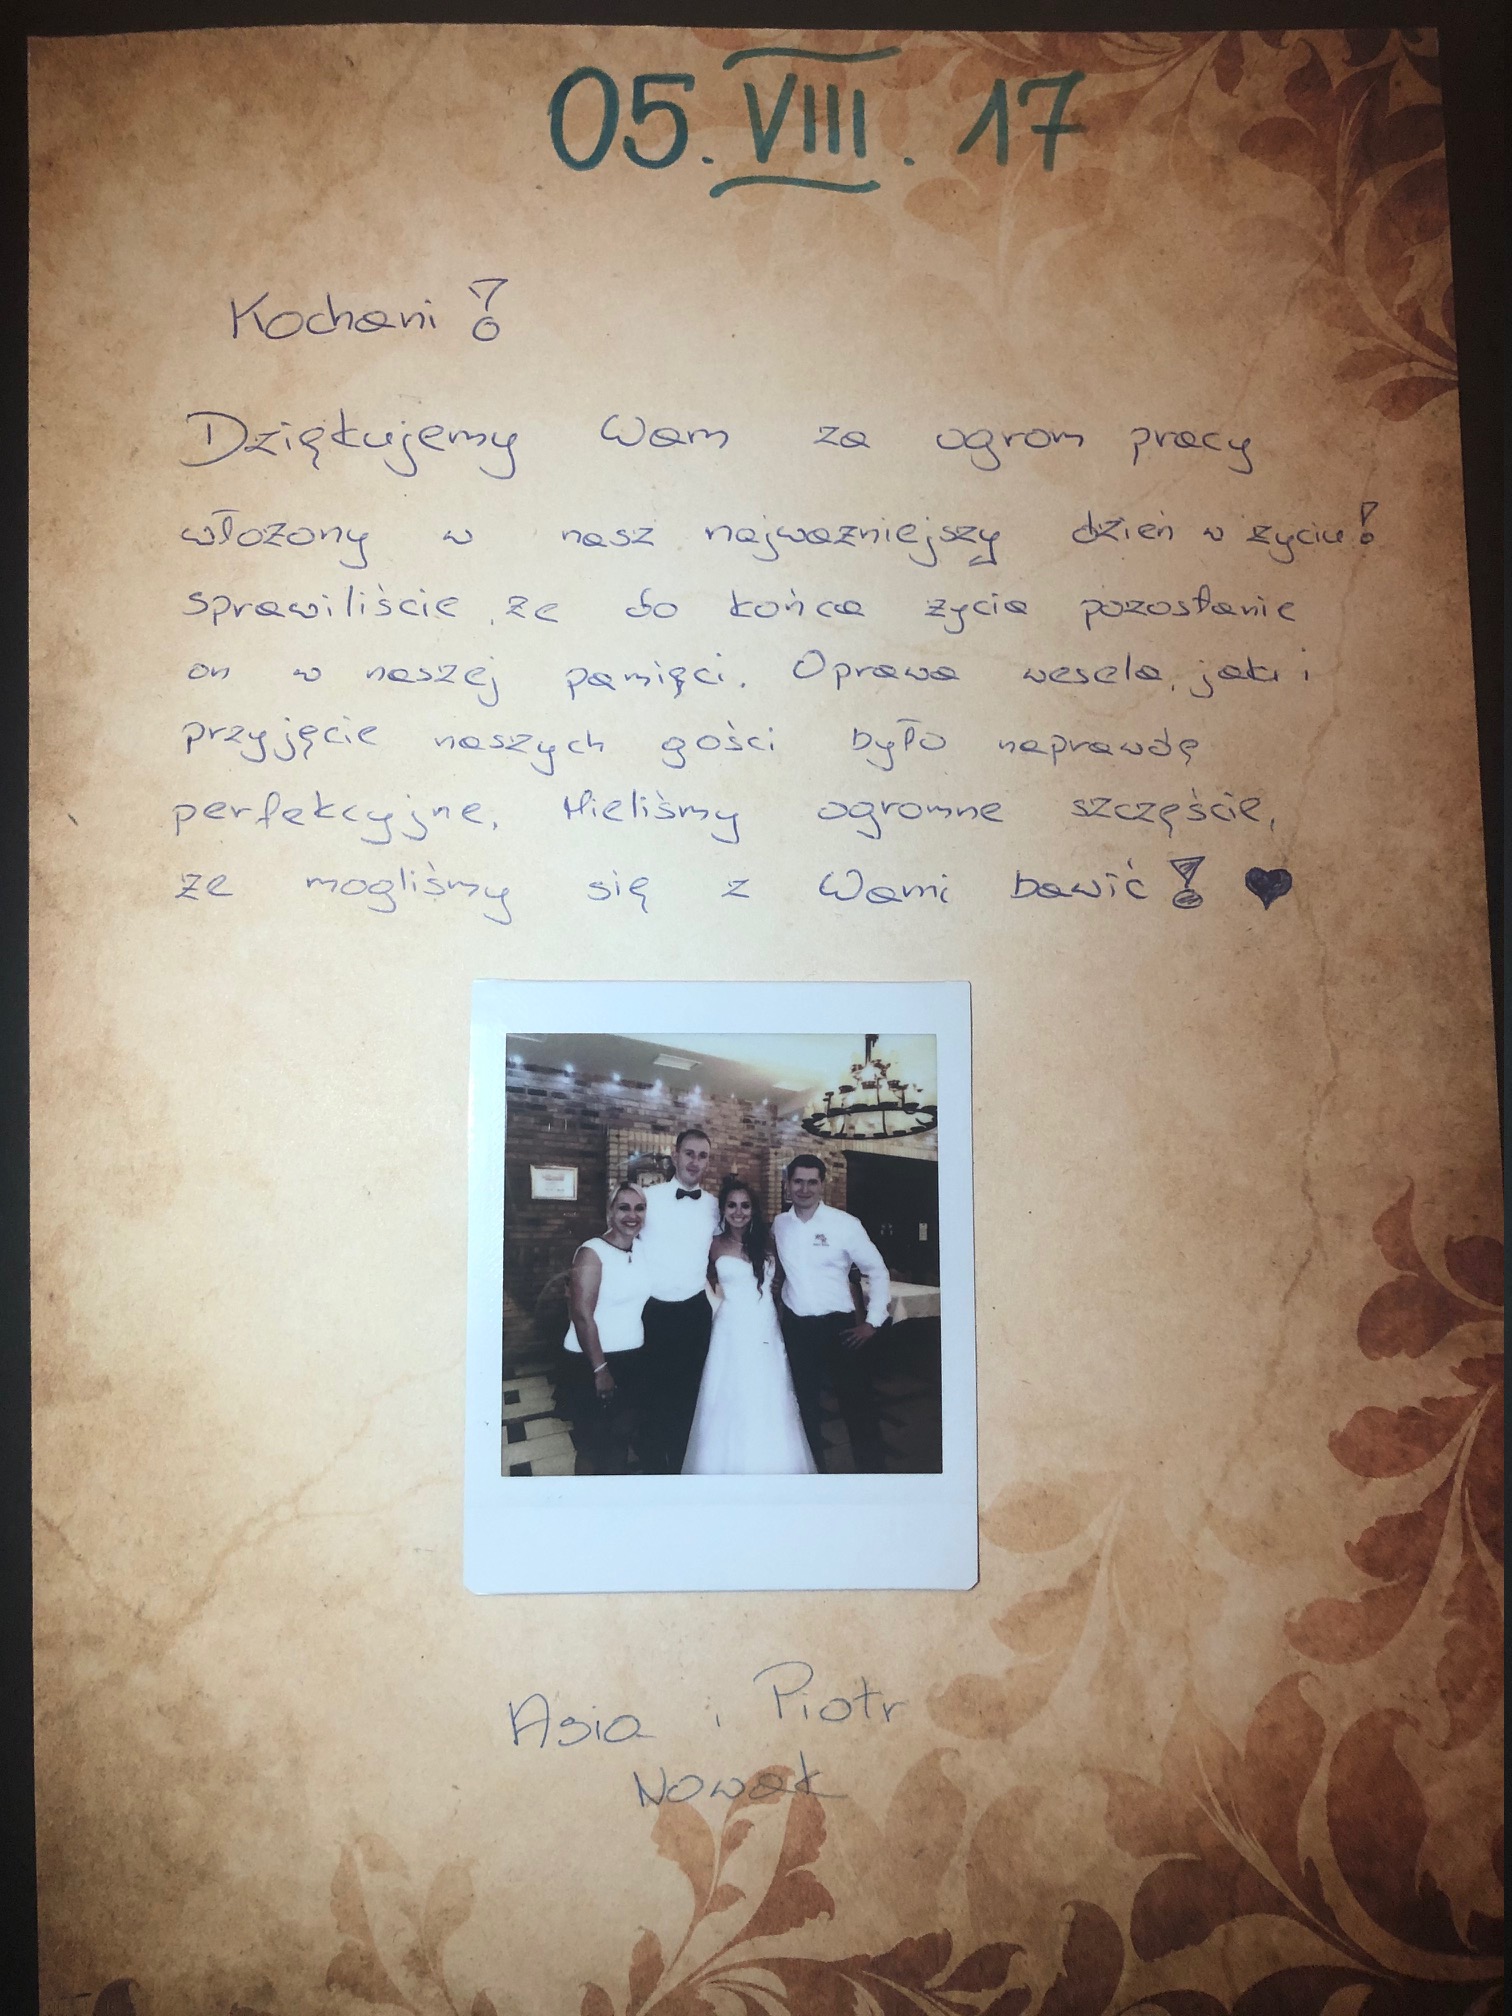 05.VIII.17
Kochani!
Dziękujemy Wam za ogrom pracy
włożony w nasz najważniejszy dzień w życiu!
Sprawiliście, że do końca życia pozostanie
on w naszej pamięci. Oprawa wesela, jak i
przyjęcie naszych gości było naprawdę
perfekcyjne. Mieliśmy ogromne szczęście,
że mogliśmy się z Wami bawić! ♥
Asia i Piotr
Nowak